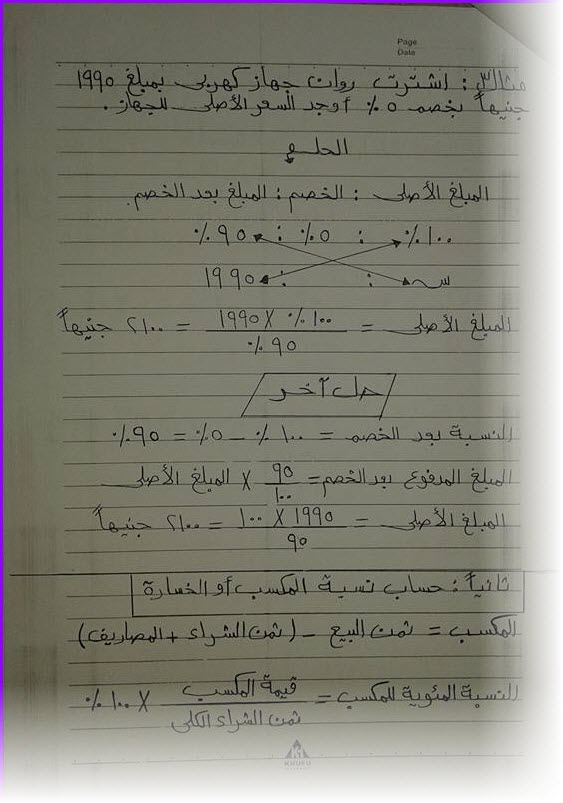 Page
Date
مثال٣: اشترت روان جهاز كهربى بمبلغ ١٩٩٥
جنيهاً بخصم ٥٪ أوجد السعر الأصلى للجهاز.
الحل
المبلغ الأصلى : الخصم : المبلغ بعد الخصم
١٠٠٪ : ٥٪ : ٩٥٪
س : : ١٩٩٥
المبلغ الأصلى = ١٠٠٪ × ١٩٩٥ / ٩٥٪ = ٢١٠٠ جنيهاً
حل آخر
النسبة بعد الخصم = ١٠٠٪ – ٥٪ = ٩٥٪
المبلغ المدفوع بعد الخصم = ٩٥ / ١٠٠ × المبلغ الأصلى
المبلغ الأصلى = ١٩٩٥ × ١٠٠ / ٩٥ = ٢١٠٠ جنيهاً
ثانياً: حساب نسبة المكسب أو الخسارة
المكسب = ثمن البيع – (ثمن الشراء + المصاريف)
النسبة المئوية للمكسب = قيمة المكسب / ثمن الشراء الكلى × ١٠٠٪
KHUFU